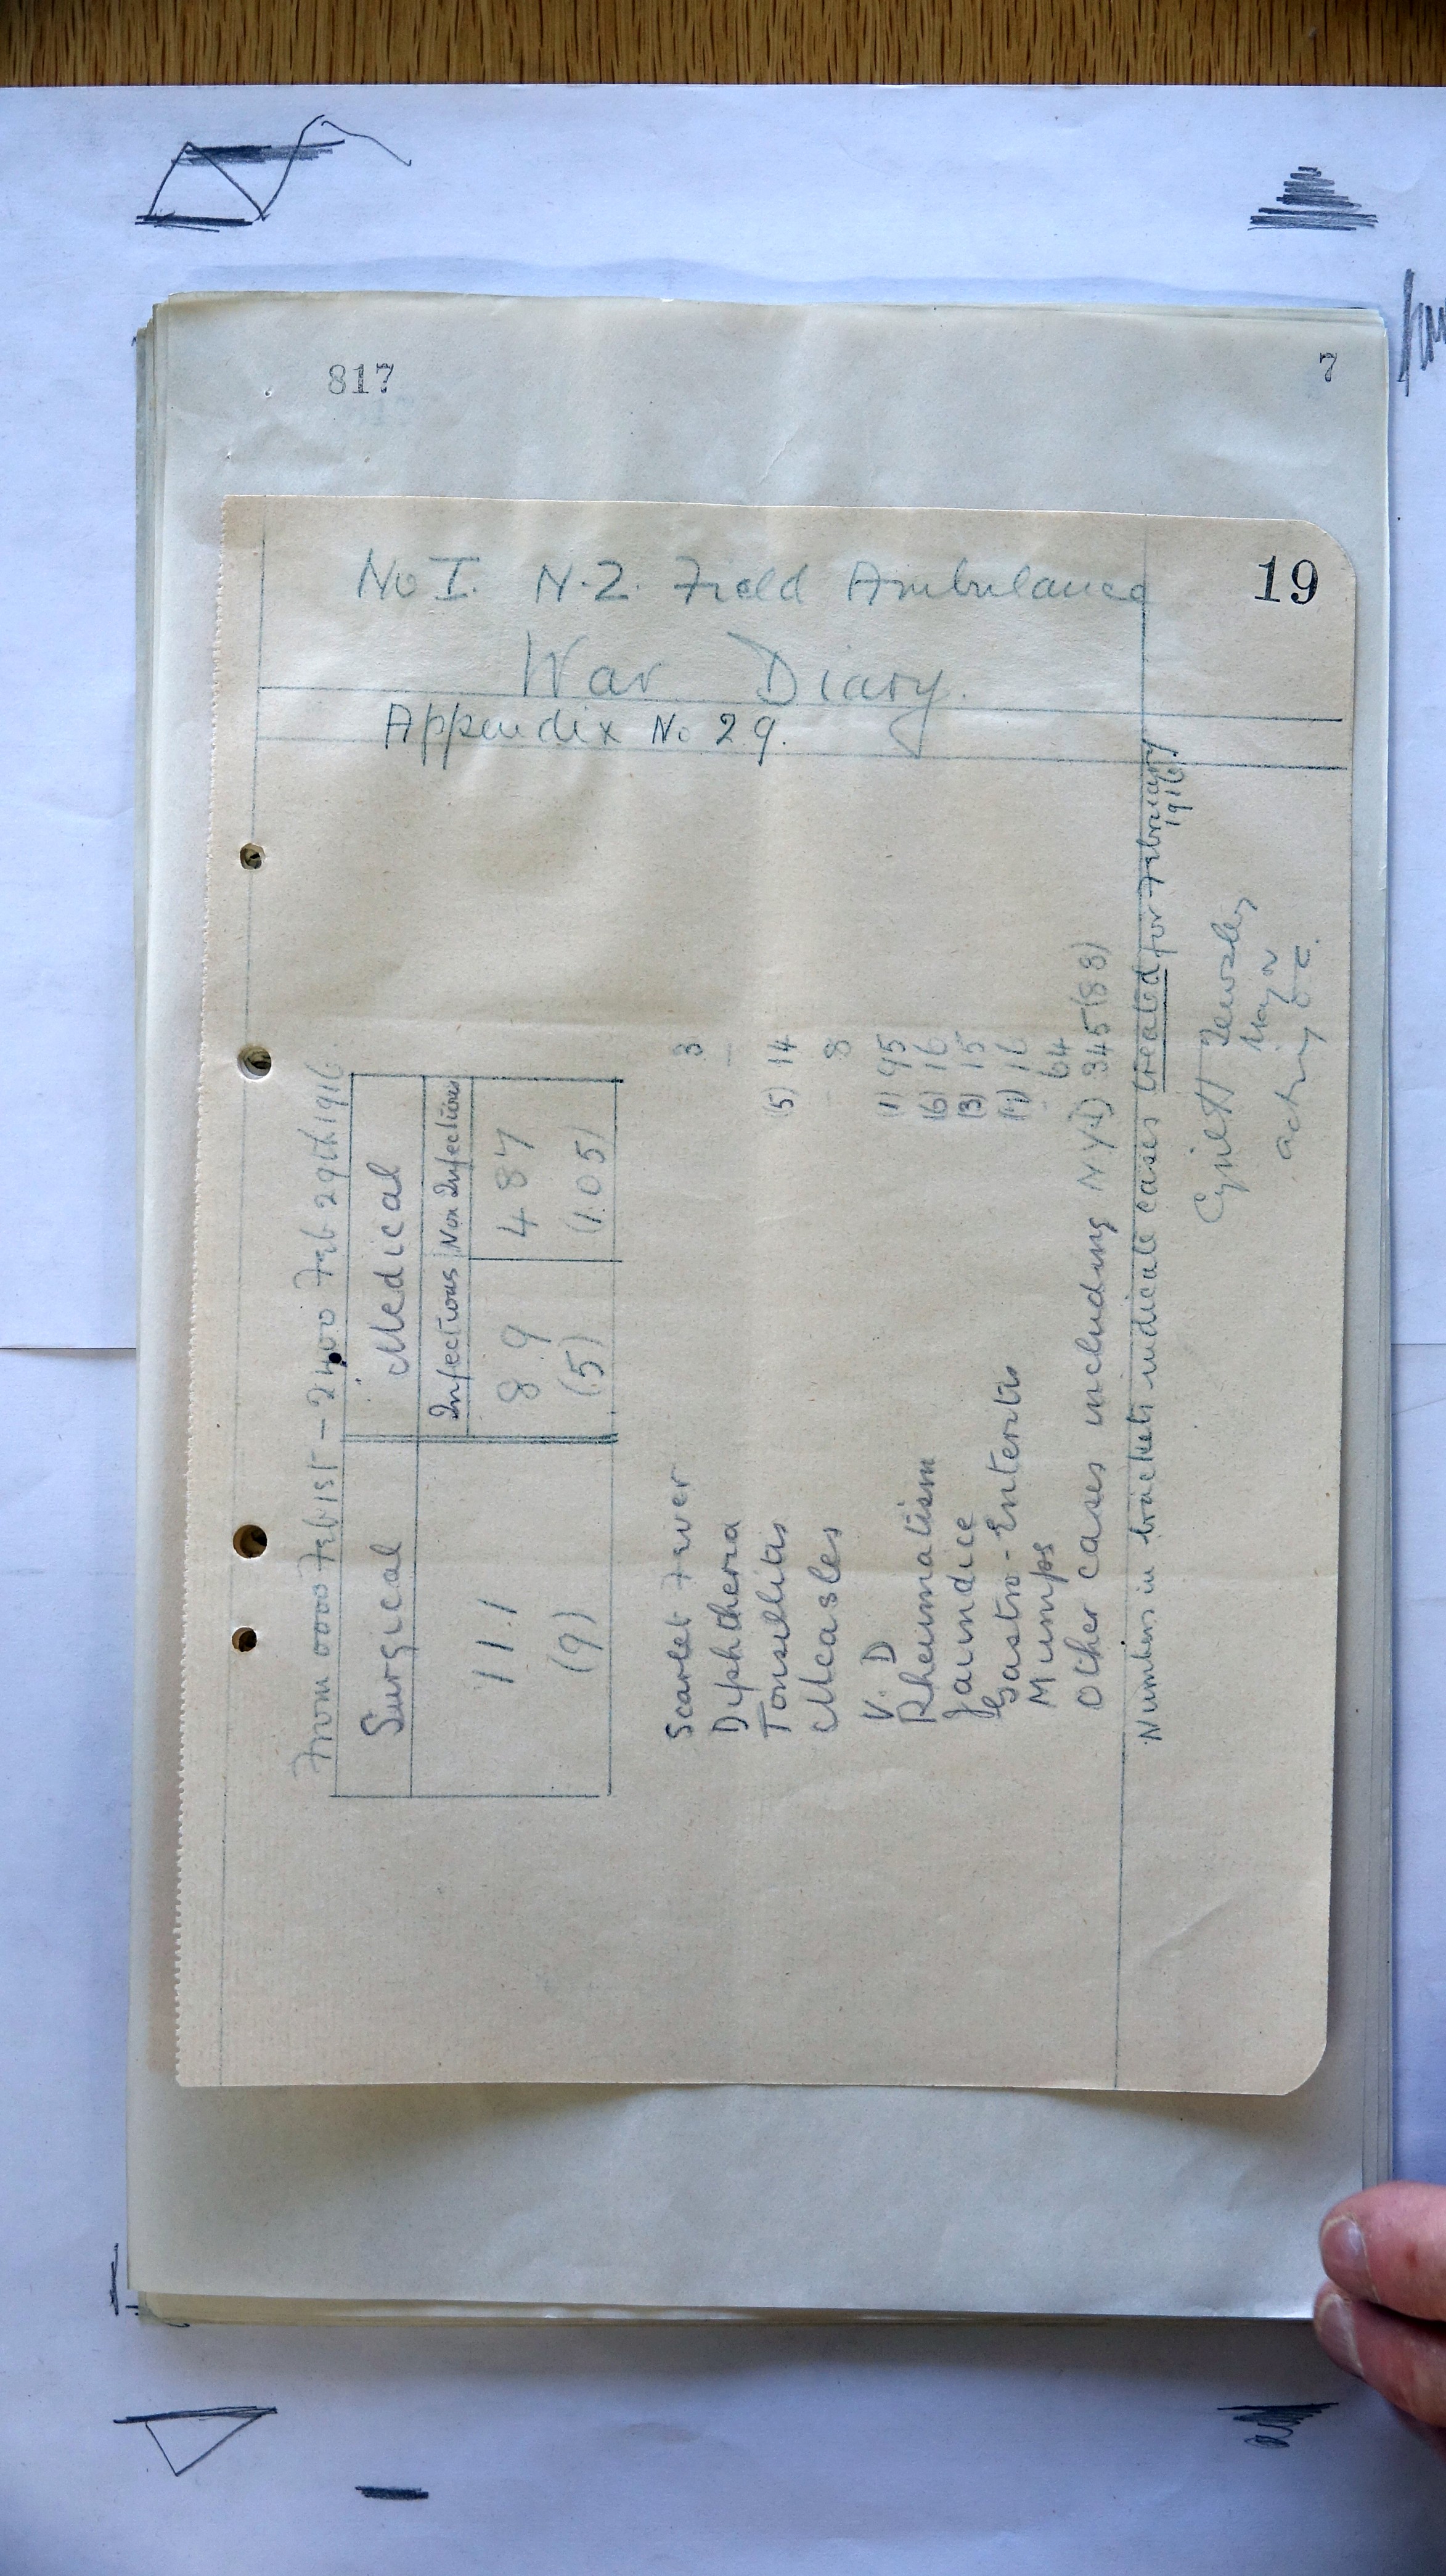 817
7
19
No I. N.Z. Field Ambulance
War Diary.
Appendix No 29.
From 0000 Feb 1st - 2400 Feb 29th 1916
Surgical Medical
Infectious Non Infectious
111 89 487
(9) (5) (105)
Scarlet Fever 3
Diphtheria –
Tonsillitis (5) 14
Measles – 8
V. D (1) 95
Rheumatism (6) 16
Jaundice (3) 15
Gastro-Enteritis 16
Mumps – 64
Other cases including NYD) 345 (88)
Numbers in brackets indicate cases treated for February
1916
Major
acting O.C.